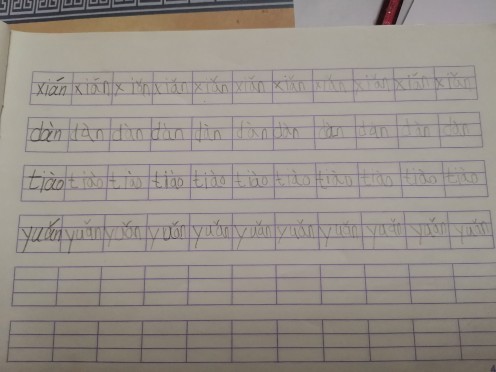 xiǎn xiǎn xiǎn xiǎn xiǎn xiǎn xiǎn xiǎn xiǎn xiǎn xiǎn
dàn dàn dàn dàn dàn dàn dàn dàn dàn dàn dàn
tiào tiào tiào tiào tiào tiào tiào tiào tiào tiào tiào
yuǎn yuǎn yuǎn yuǎn yuǎn yuǎn yuǎn yuǎn yuǎn yuǎn yuǎn